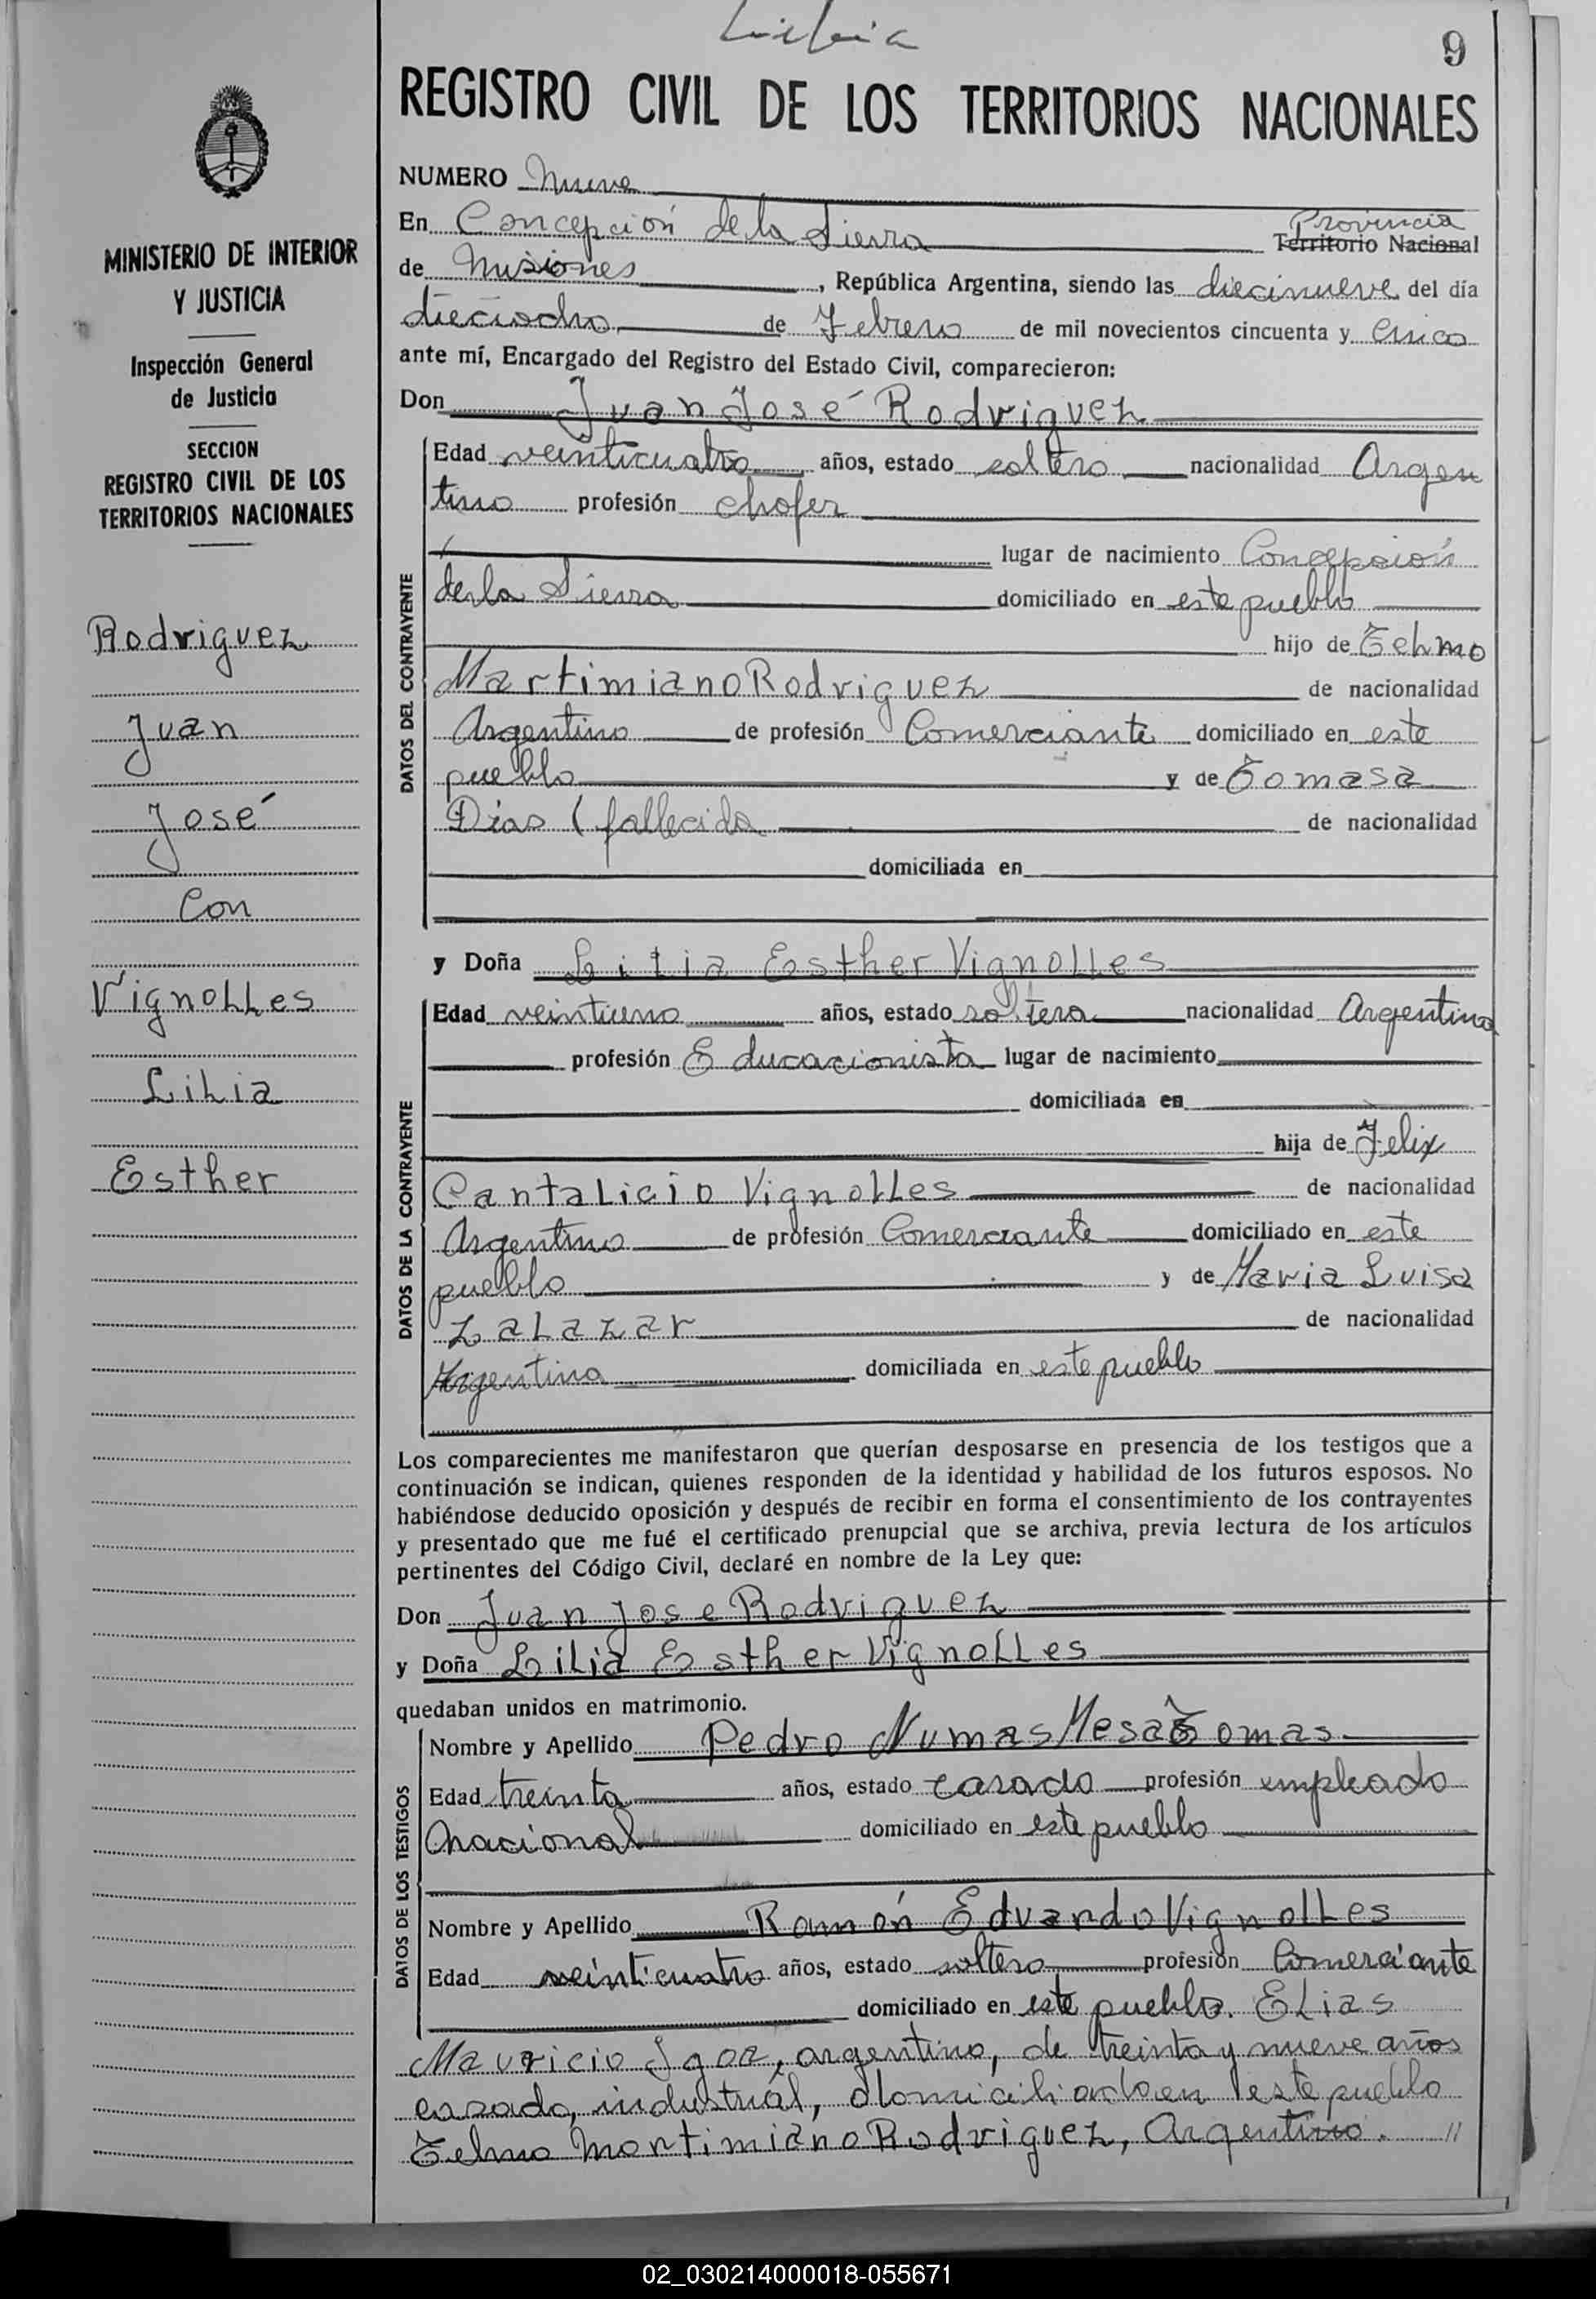 9
REGISTRO CIVIL DE LOS TERRITORIOS NACIONALES
MINISTERIO DE INTERIOR
Y JUSTICIA
Inspección General
de Justicia
SECCION
REGISTRO CIVIL DE LOS
TERRITORIOS NACIONALES
Rodriguez
Juan
José
Con
Vignolles
Lilia
Esther
NUMERO Nueve
En Concepción de la Sierra Provincia Territorio Nacional
de Misiones, República Argentina, siendo las diecinueve del día
dieciocho de Febrero de mil novecientos cincuenta y cinco
ante mí, Encargado del Registro del Estado Civil, comparecieron:
Don Juan José Rodriguez
DATOS DEL CONTRAYENTE
Edad veinticuatro años, estado soltero nacionalidad Argen
tino profesión chofer
lugar de nacimiento Concepción
de la Sierra domiciliado en este pueblo
hijo de Telmo
Martimiano Rodriguez de nacionalidad
Argentino de profesión Comerciante domiciliado en este
pueblo y de Tomasa
Dias (fallecida de nacionalidad
domiciliada en
y Doña Lilia Esther Vignolles
DATOS DE LA CONTRAYENTE
Edad veintiuno años, estado soltera nacionalidad Argentina
profesión Educacionista lugar de nacimiento
domiciliada en
hija de Felix
Cantalicio Vignolles de nacionalidad
Argentino de profesión Comerciante domiciliado en este
pueblo y de Maria Luisa
Zalazar de nacionalidad
Argentina domiciliada en este pueblo
Los comparecientes me manifestaron que querían desposarse en presencia de los testigos que a
continuación se indican, quienes responden de la identidad y habilidad de los futuros esposos. No
habiéndose deducido oposición y después de recibir en forma el consentimiento de los contrayentes
y presentado que me fué el certificado prenupcial que se archiva, previa lectura de los artículos
pertinentes del Código Civil, declaré en nombre de la Ley que:
Don Juan Jose Rodriguez
y Doña Lilia Esther Vignolles
quedaban unidos en matrimonio.
DATOS DE LOS TESTIGOS
Nombre y Apellido Pedro Numas Mesa Tomas
Edad treinta años, estado casado profesión empleado
nacional domiciliado en este pueblo
Nombre y Apellido Ramón Eduardo Vignolles
Edad veinticuatro años, estado soltero profesión Comerciante
domiciliado en este pueblo. Elias
Mauricio, argentino, de treinta y nueve años
casado, industrial, domiciliado en este pueblo
Telmo Martimiano Rodriguez, Argentino. //
02_030214000018-055671